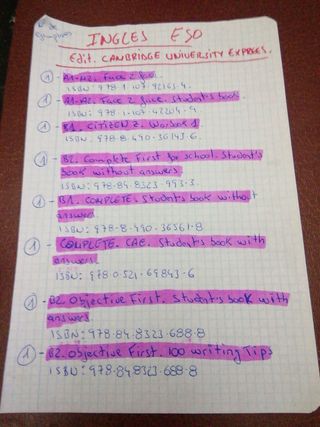 INGLES ESO
Edit. CAMBRIDGE UNIVERSITY EXPRESS.
① - A1-A2. Face 2 face.
ISBN: 978-1-107-42207-4.
① - A1-A2. Face 2 face. Student's book
① - B1. CITIZEN Z. Workbook 1
ISBN: 978-8-490-36143-6.
① - B2. Complete First for school. Student's
book without answers
ISBN: 978-84-8323-993-3.
① - B1. COMPLETE. Student's book without
answers
ISBN: 978-8-490-36361-8
① - COMPLETE. CAE. Student's book with
answers.
ISBN: 978-0-521-69843-6
① - B2. Objective First. Student's book with
answers
ISBN: 978-84-8323-688-8
① - B2. Objective First. 100 writing Tips
ISBN: 978-84-8323-688-8